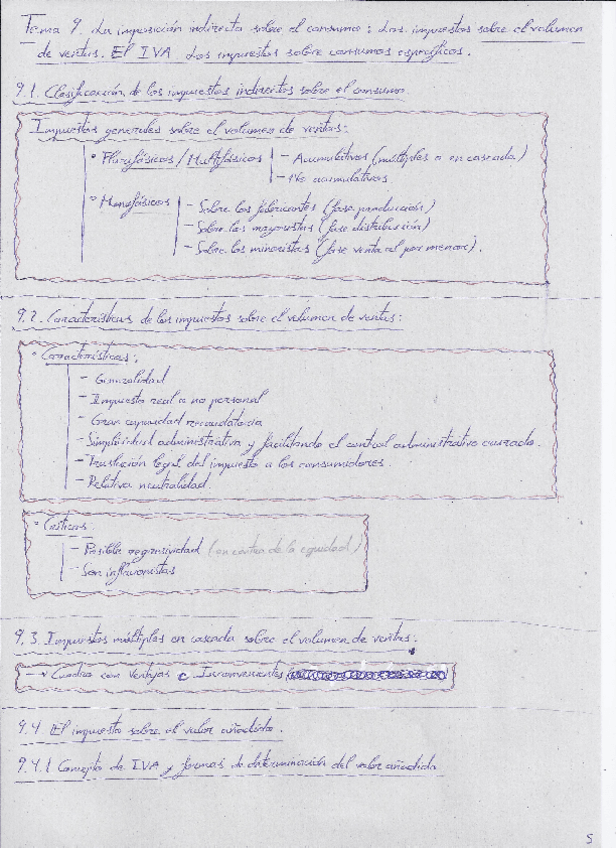 Tema 9. La imposición indirecta sobre el consumo: Los impuestos sobre el volumen
de ventas. El IVA. Los impuestos sobre consumos específicos.
9.1. Clasificación de los impuestos indirectos sobre el consumo.
Impuestos generales sobre el volumen de ventas:
• Plurifásicos / Multifásicos
- Acumulativos (múltiples o en cascada)
- No acumulativos
• Monofásicos
- Sobre los fabricantes (fase producción)
- Sobre los mayoristas (fase distribución)
- Sobre los minoristas (fase venta al por menor).
9.2. Características de los impuestos sobre el volumen de ventas:
• Características:
- Generalidad
- Impuesto real o no personal
- Gran capacidad recaudatoria
- Simplicidad administrativa y facilitando el control administrativo cruzado.
- Traslación legal del impuesto a los consumidores.
- Relativa neutralidad.
• Críticas:
- Posible regresividad (en contra de la equidad)
- Son inflacionistas
9.3. Impuestos múltiples en cascada sobre el volumen de ventas.
→ Cuadro con Ventajas e Inconvenientes
9.4. El impuesto sobre el valor añadido.
9.4.1 Concepto de IVA y formas de determinación del valor añadido
5